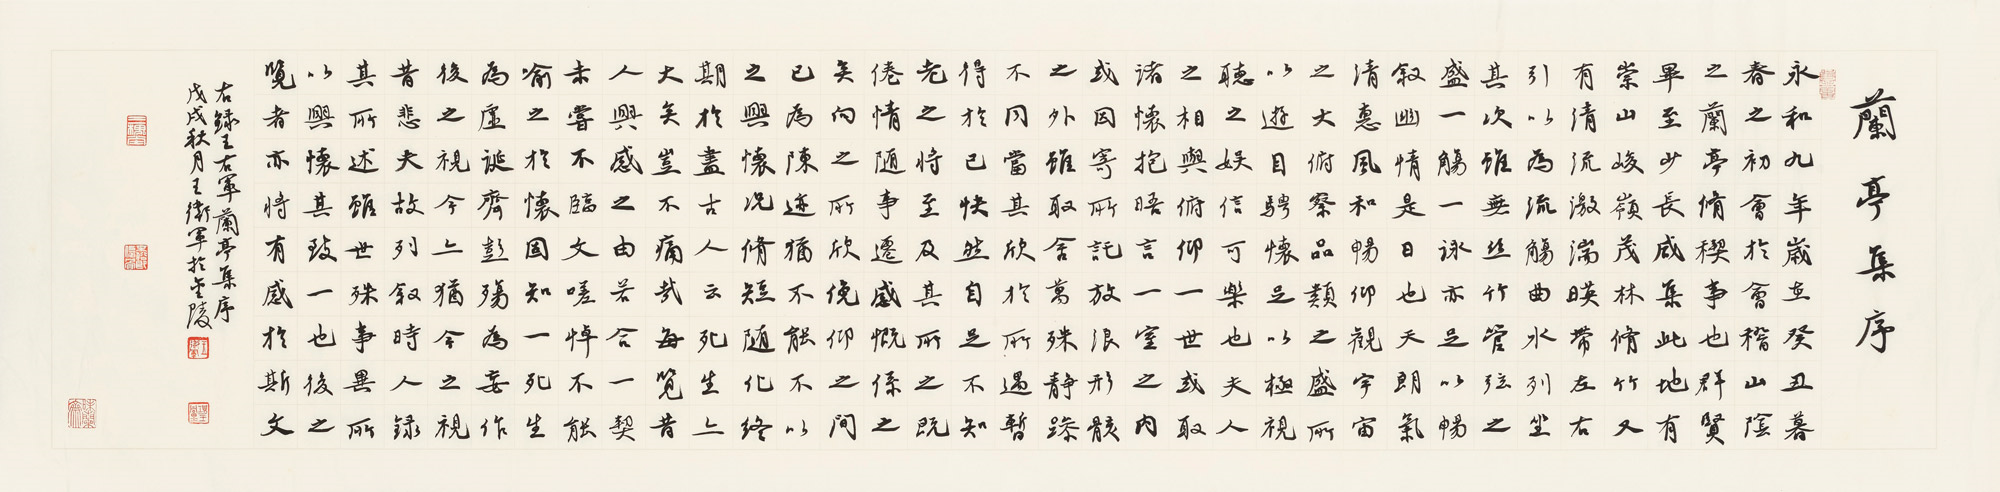 蘭亭集序
永和九年歲在癸丑暮
春之初會於會稽山陰
之蘭亭脩稧事也群賢
畢至少長咸集此地有
崇山峻嶺茂林脩竹又
有清流激湍暎帶左右
引以為流觴曲水列坐
其次雖無絲竹管弦之
盛一觴一詠亦足以暢
敘幽情是日也天朗氣
清惠風和暢仰觀宇宙
之大俯察品類之盛所
以遊目騁懷足以極視
聽之娛信可樂也夫人
之相與俯仰一世或取
諸懷抱晤言一室之內
或因寄所託放浪形骸
之外雖取舍萬殊静躁
不同當其欣於所遇暫
得於己快然自足不知
老之將至及其所之既
倦情随事遷感慨係之
矣向之所欣俛仰之間
已為陳迹猶不能不以
之興懷況脩短随化終
期於盡古人云死生亦
大矣豈不痛哉每覽昔
人興感之由若合一契
未嘗不臨文嗟悼不能
喻之於懷固知一死生
為虛誕齊彭殤為妄作
後之視今亦猶今之視
昔悲夫故列敘時人錄
其所述雖世殊事異所
以興懷其致一也後之
覽者亦將有感於斯文
右錄王右軍蘭亭集序
戊戌秋月王衛軍於金陵